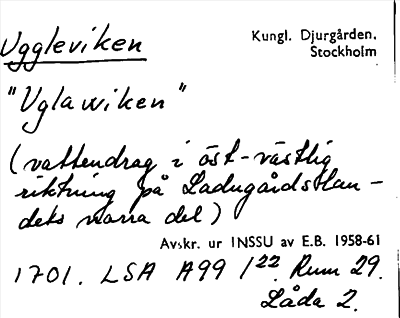 Uggleviken
Kungl. Djurgården.
Stockholm
"Uglawiken"
(vattendrag i öst-västlig
riktning på Ladugårdslan-
dets norra del)
Avskr. ur INSSU av E.B. 1958-61
1701. LSA A99 1/22. Rum 29.
Låda 2.